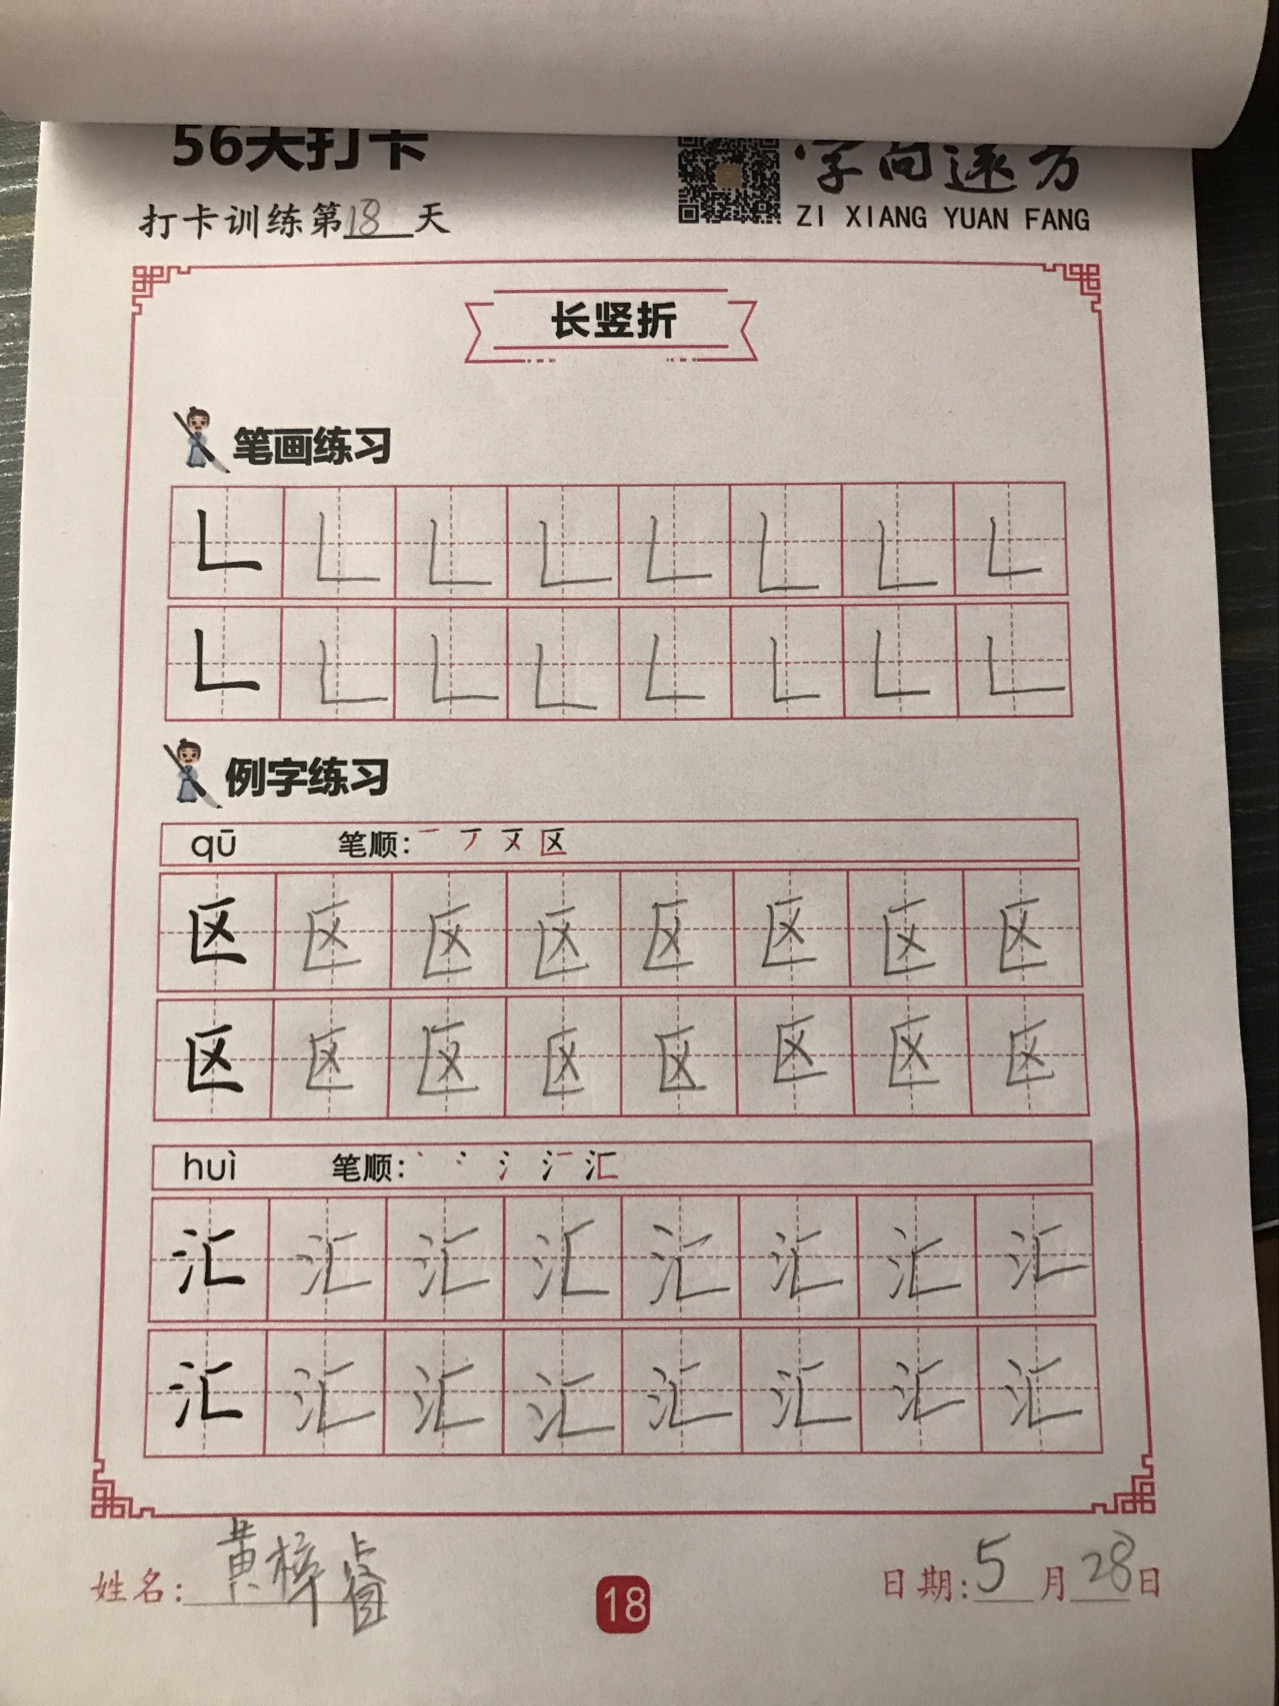 56天打卡
字向远方
打卡训练第18天
ZI XIANG YUAN FANG
长竖折
笔画练习
例字练习
qū 笔顺: 区
区 区 区 区 区 区 区 区
区 区 区 区 区 区 区 区
huì 笔顺: 汇
汇 汇 汇 汇 汇 汇 汇 汇
汇 汇 汇 汇 汇 汇 汇 汇
姓名: 黄梓睿 日期: 5月28日
18